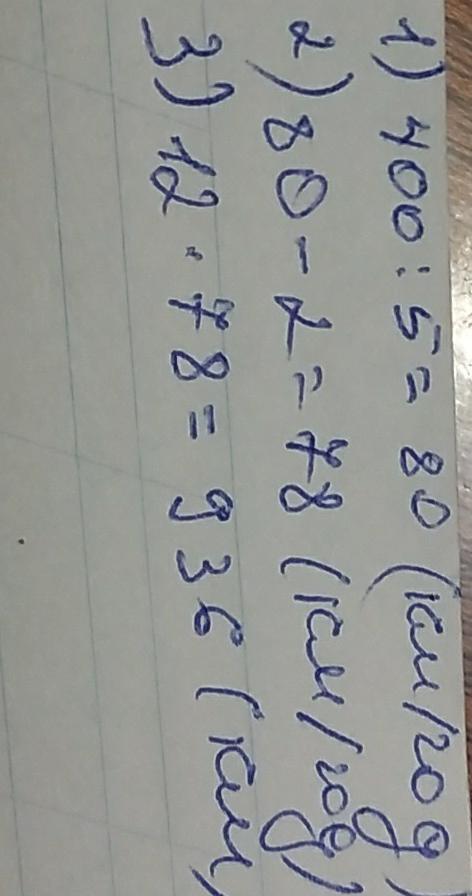 1) 400 : 5 = 80 (км/год)
2) 80 - 2 = 78 (км/год)
3) 12 · 78 = 936 (км)